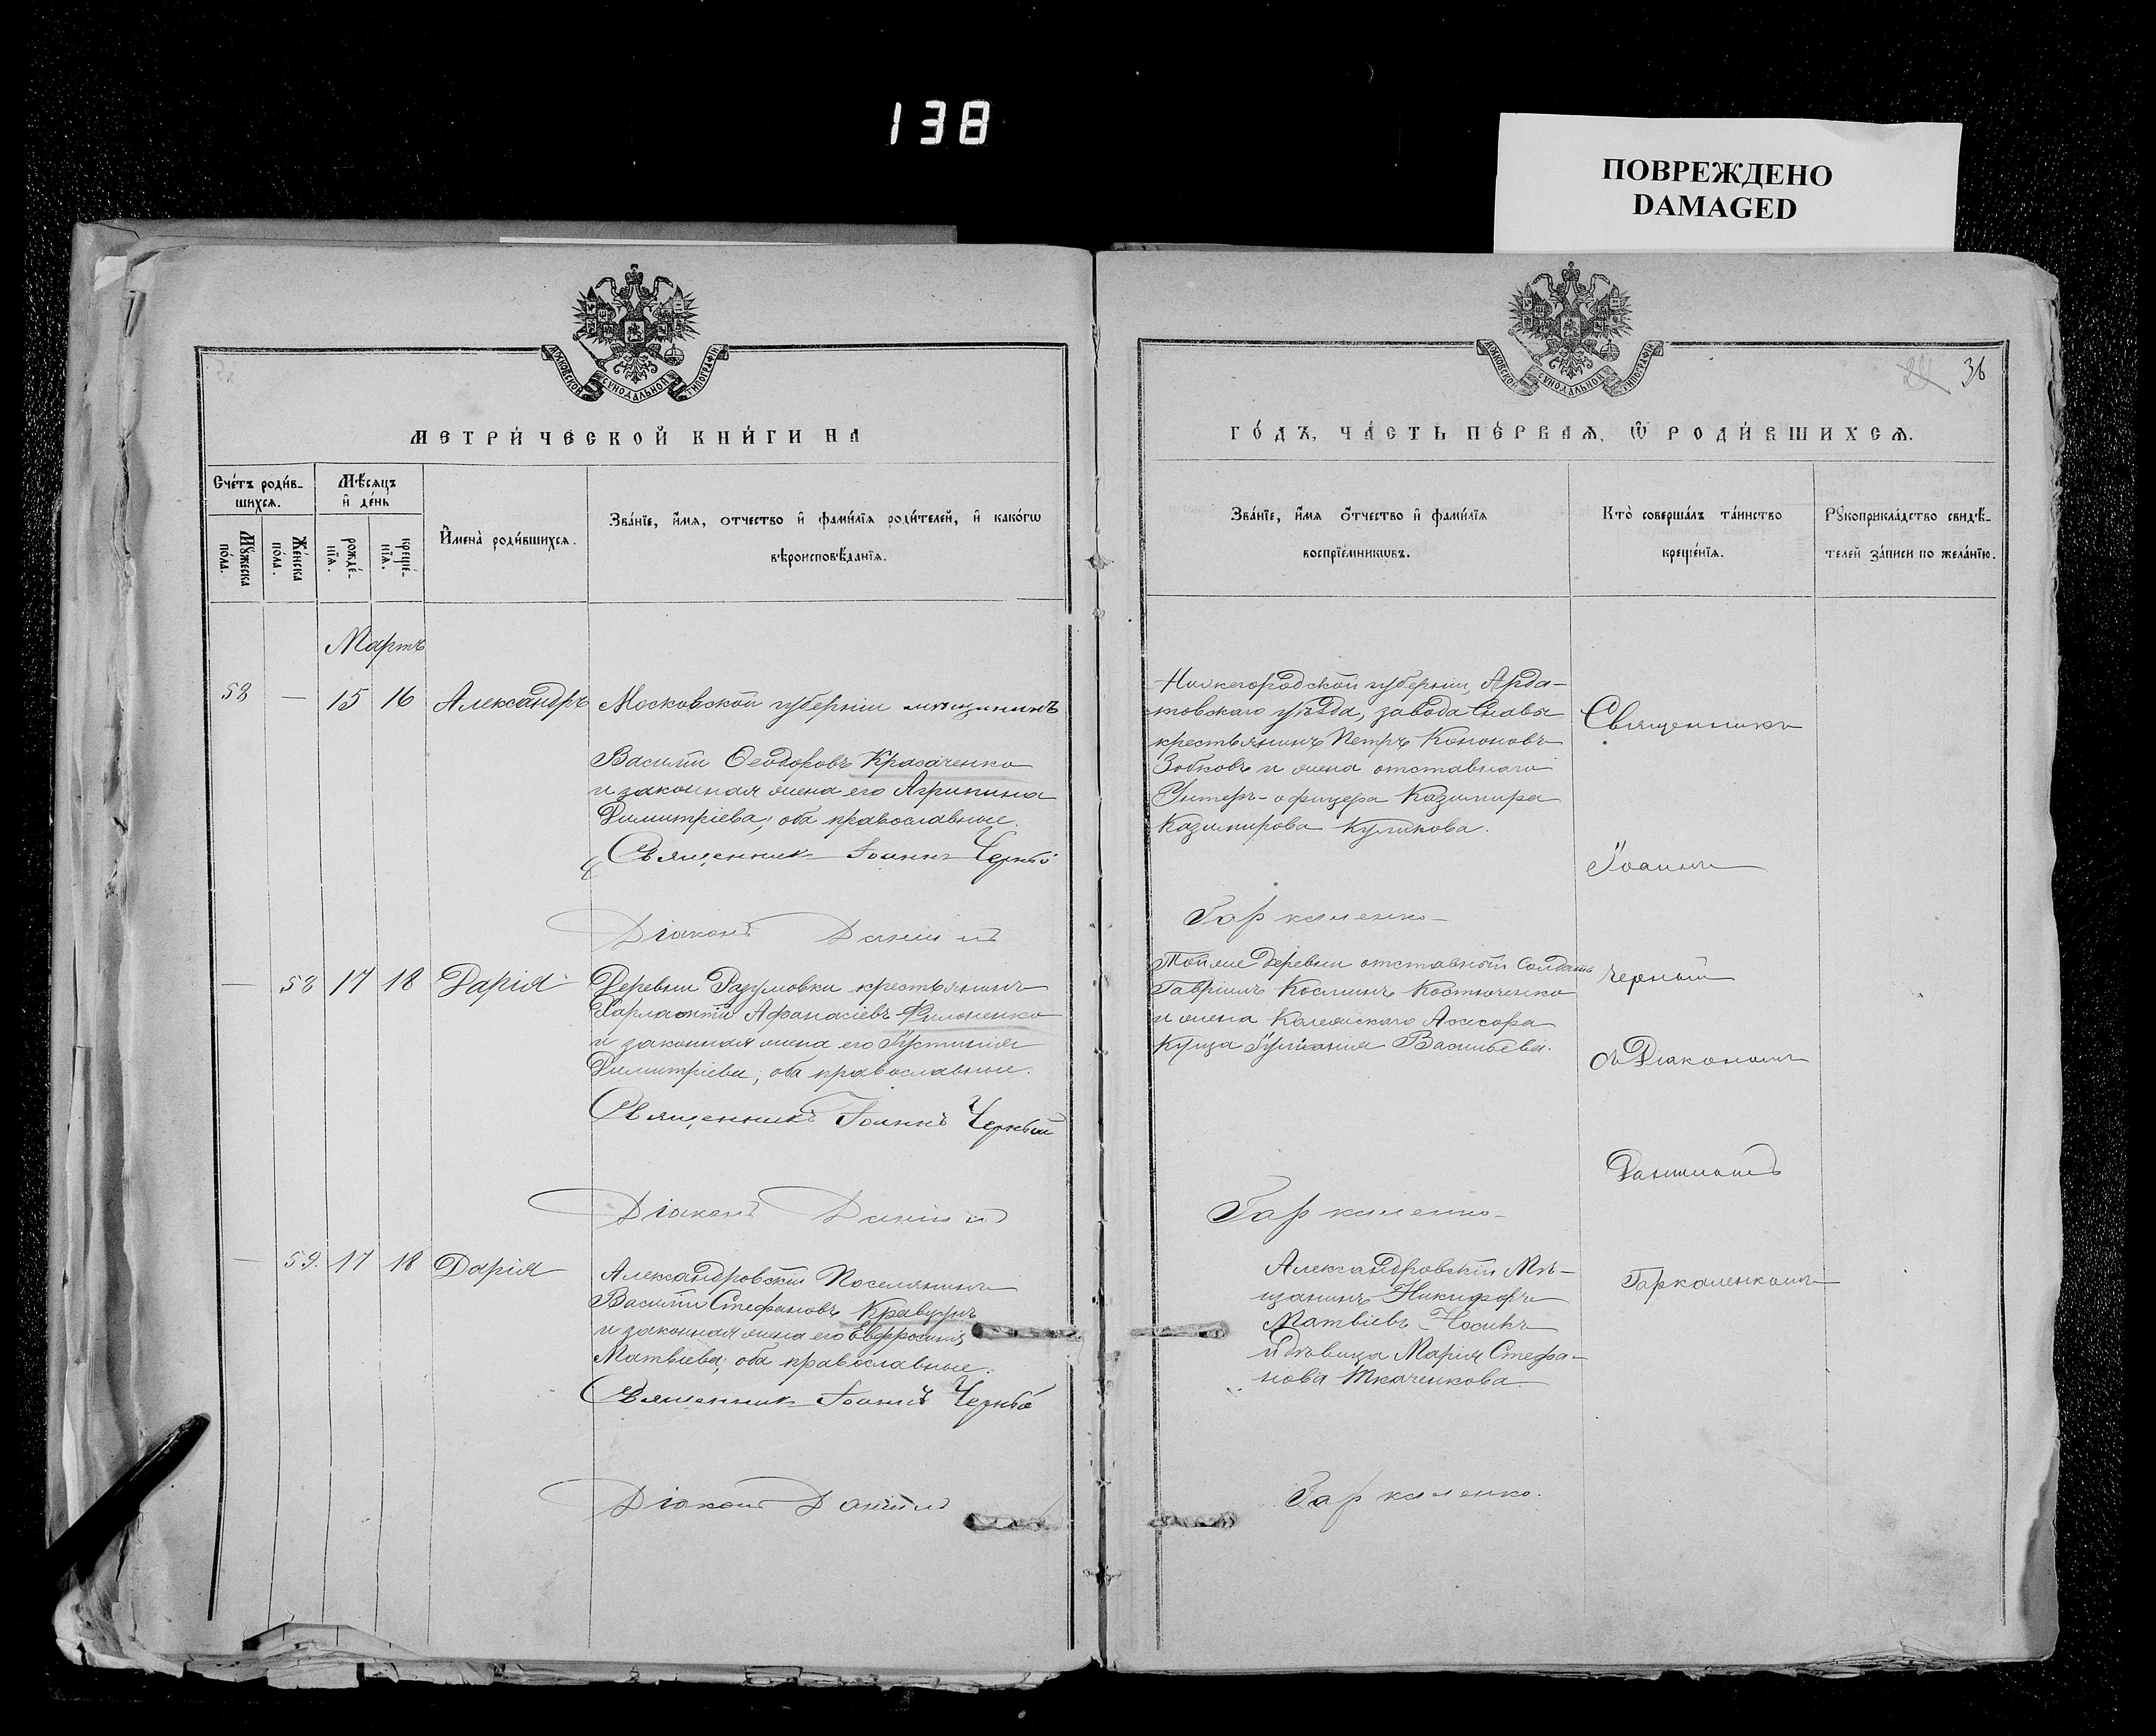 138
ПОВРЕЖДЕНО
DAMAGED
МОСКОВСКОЙ СѴНОДАЛЬНОЙ ТИПОГРАФІИ
МЕТРИ́ЧЕСКОЙ КНИ́ГИ НА
Сче́тъ роди́в-
шихсѧ.
Мꙋ́жеска
по́ла.
Же́нска
по́ла.
Мѣ́сѧцъ
и҆ де́нь
рожде́-
нїѧ.
креще́-
нїѧ.
И҆мена̀ роди́вшихсѧ.
Зва́нїе, и҆́мѧ, отчество и҆ фами́лїѧ роди́телей, и҆ како́гѡ
вѣроисповѣ́данїѧ.
Мартъ
58 — 15 16 Александръ Московской губерніи мѣщанинъ
Василій Ѳеодоровъ Красаченко
и законная жена его Агрипина
Димитріева, оба православные.
Священникъ Іоаннъ Черный
Діаконъ Даніилъ
— 58 17 18 Дарія Деревни Разумовки крестьянинъ
Харлампій Афанасіевъ Филоненко
и законная жена его Іустинія
Димитріева, оба православные.
Священникъ Іоаннъ Черный
Діаконъ Даніилъ
— 59. 17 18 Дарія Александровскій Поселянинъ
Василій Стефановъ Кравцунъ
и законная жена его Евфросинія
Матвіева, оба православные.
Священникъ Іоаннъ Черный
Діаконъ Даніилъ
МОСКОВСКОЙ СѴНОДАЛЬНОЙ ТИПОГРАФІИ
36
ГО́ДЪ, ЧА́СТЬ ПЕ́РВАѦ, Ѡ҆ РОДИ́ВШИХСѦ.
Зва́нїе, и҆́мѧ о҆́тчество и҆ фами́лїѧ
воспрїе́мникѡвъ.
Кто̀ соверша́лъ та́инство
креще́нїѧ.
Рꙋкоприкла́дство свидѣ́-
телей за́писи по жела́нїю.
Нижегородской губерніи, Арда-
товскаго уѣзда, завода Снавы
крестьянинъ Петръ Кононовъ
Зобковъ и жена отставнаго
Унтеръ-офицера Казимира
Казимирова Куликова.
Гаркаленко
Тойже деревни отставный Солдатъ
Гавріилъ Косминъ Костюченко
и жена Колежскаго Асесора
Купца Іуліанія Васильева.
Гаркаленко
Александровскій Мѣ-
щанинъ Никифоръ
Матвіевъ Носикъ
и дѣвица Марія Стефа-
нова Ткаченкова.
Гаркаленко.
Священникъ
Іоаннъ
Черный
съ Діакономъ
Даніиломъ
Гаркаленкомъ